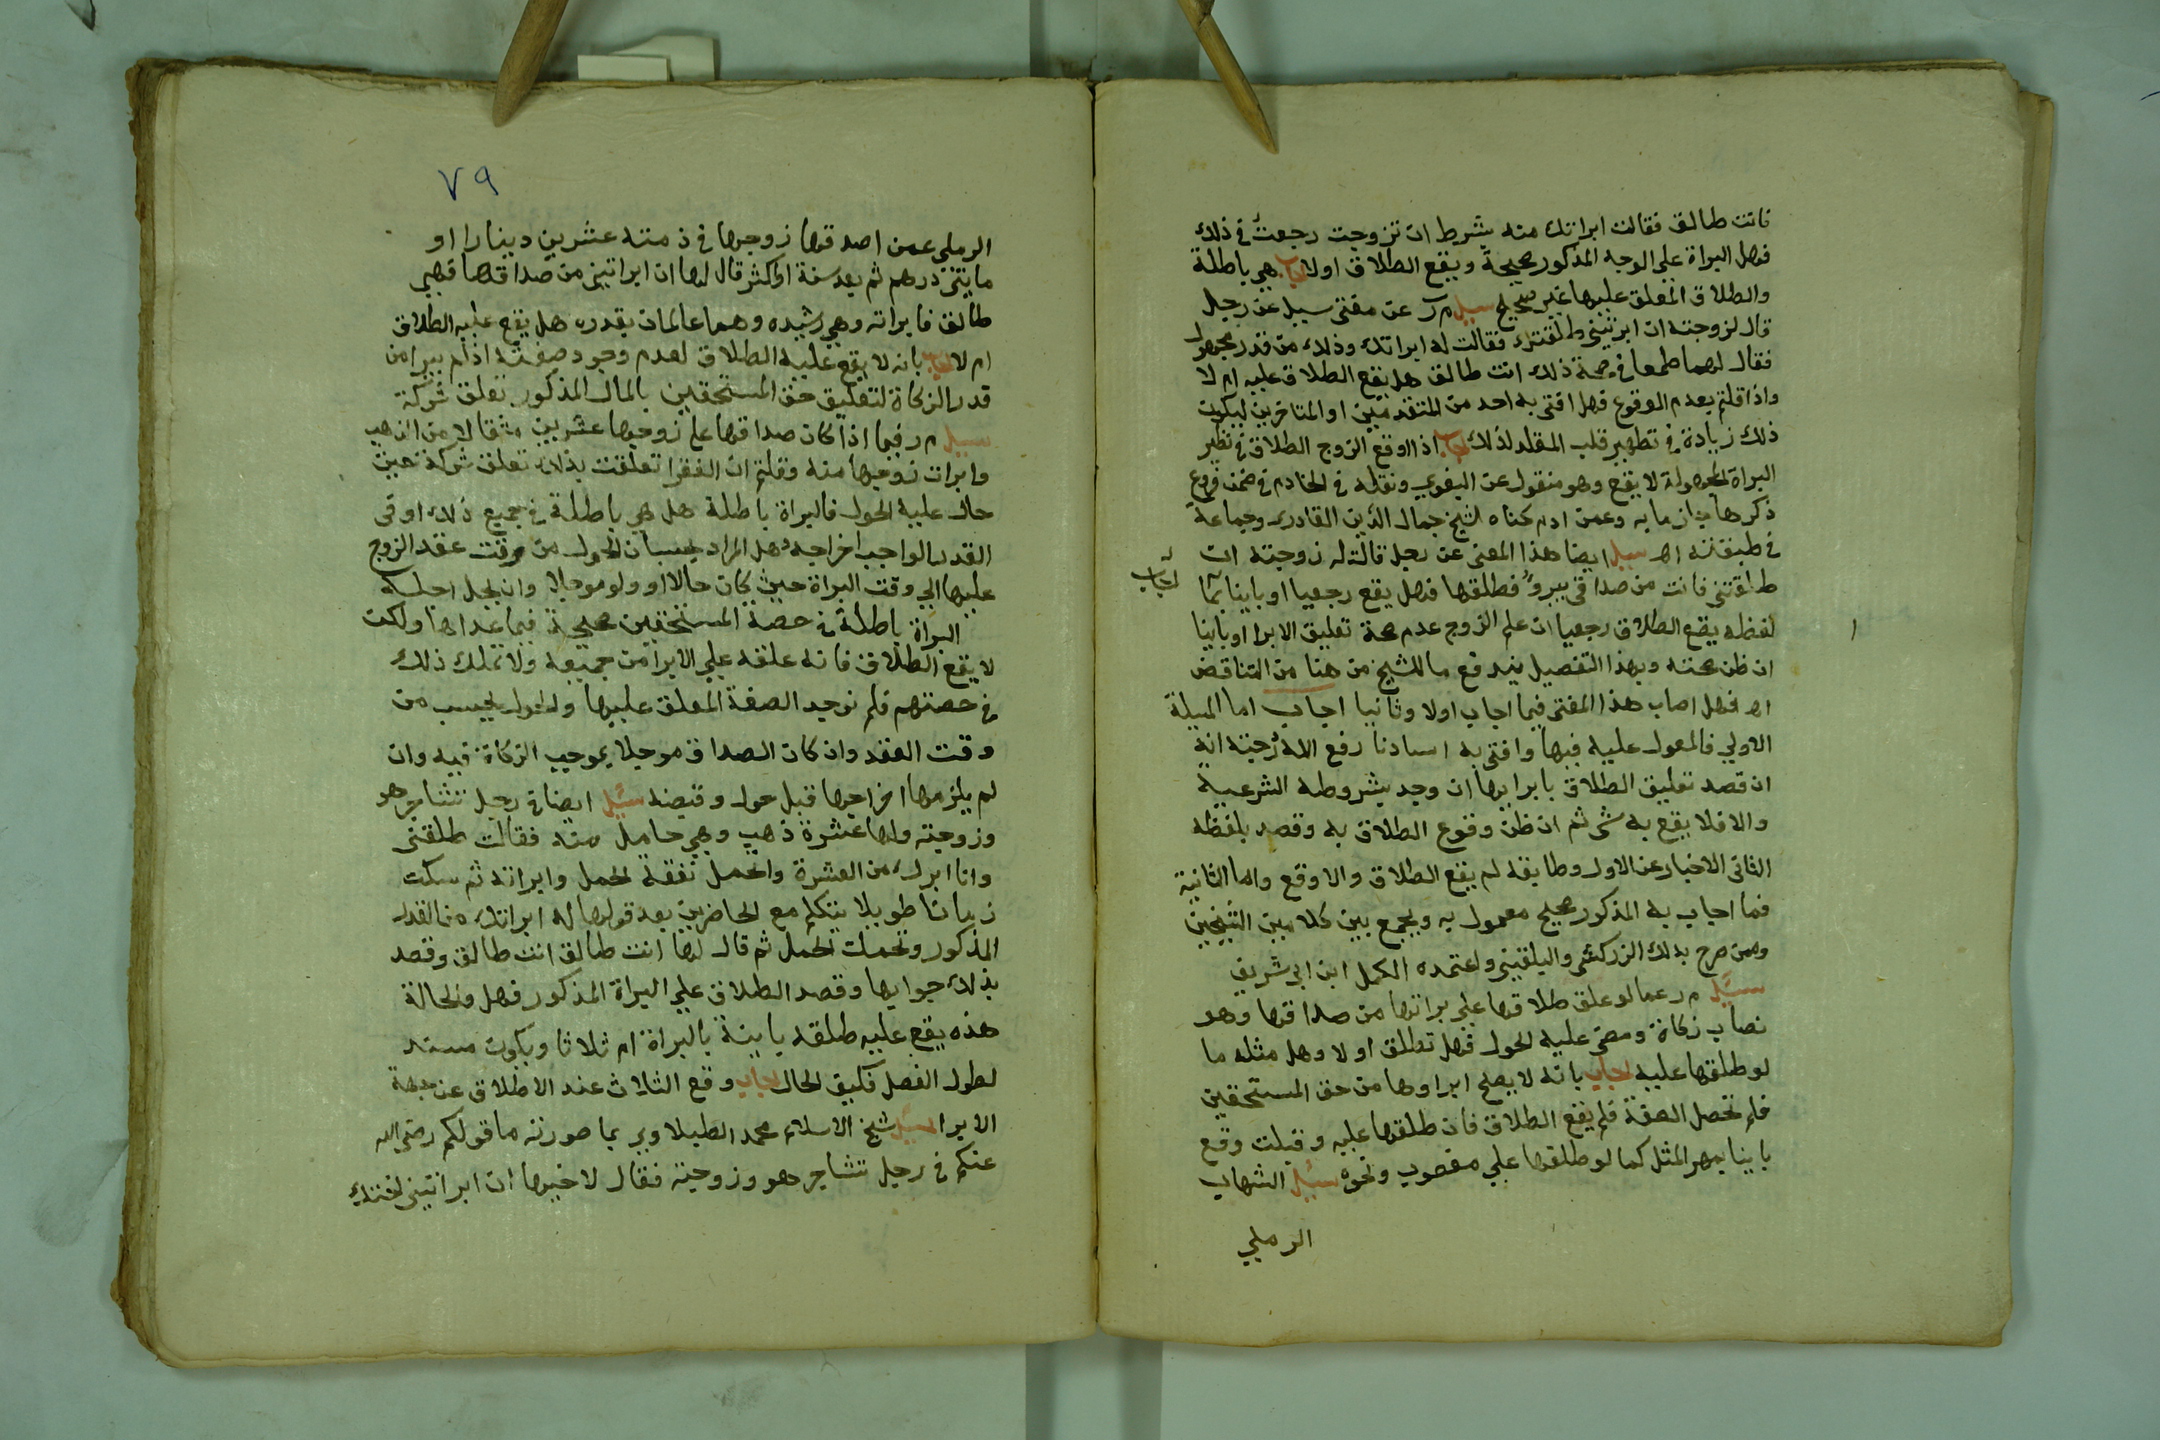 فانت طالق فقالت ابراتك منه بشرط ان تزوجت رجعت في ذلك
فهل البراة على الوجه المذكور صحيحة ويقع الطلاق اولا اجاب هي باطلة
والطلاق المعلق عليها غير صحيح سيل م ر عن مفتى سيل عن رجل
قال لزوجته ان ابرتيني طلقتك فقالت له ابراتك وذلك من قدر مجهول
فقال لهما طمعا في صحة ذلك انت طالق هل يقع الطلاق عليه ام لا
واذا قلتم بعدم الوقوع فهل افتى به احد من المتقدمين او المتاخرين ليكون
ذلك زيادة في تطهير قلب المقلد لذلك اجاب اذا اوقع الزوج الطلاق في نظير
البراة المجهولة لا يقع وهو منقول عن البغوي ونقله في الخادم في ضمن فروع
ذكرها وعمن ادركناه الشيخ جمال الدين القادري وجماعة
في طبقته اه سيل ايضا هذا المفتى عن رجل قالت له زوجته ان
اجاب
طلقتني فانت من صداقي بيرو فطلقها فهل يقع رجعيا او باينا بما
لفظه يقع الطلاق رجعيا ان علم الزوج عدم صحة تعليق الابرا او باينا
ان ظن صحته وبهذا التفصيل يندفع ما للشيخ من هنا من التناقض
اه فهل اصاب هذا المفتى فيما اجاب اولا وثانيا اجاب اما المسيلة
الاولي فالمعول عليه فيها وافتى به استادنا رفع الله درجته انه
ان قصد تعليق الطلاق بابرايها ان وجد بشروطه الشرعية
والا فلا يقع به شي ثم ان ظن وقوع الطلاق به وقصد بلفظه
الثاني الاخبار عن الاول وطابقه لم يقع الطلاق والا وقع واما الثانية
فما اجاب به المذكور صحيح معمول به ويجمع بين كلامين الشيخين
وممن صرح بذلك الزركشي والبلقيني واعتمده الكمل ابن ابي شريف
سيل م ر عما لو علق طلاقها على براتها من صداقها وهو
نصاب زكاة ومضى عليه الحول فهل تطلق او لا وهل مثله ما
لو طلقها عليه اجاب بانه لا يصح ابراوها من حق المستحقين
فلم تحصل الصفة فلم يقع الطلاق فان طلقها عليه وقبلت وقع
باينا بمهر المثل كما لو طلقها علي مغصوب ونحوه سيل الشهاب
الرملي
٧٩
الرملي عمن اصدقها زوجها في ذمته عشرين دينارا او
مايتي درهم ثم بعد سنة او اكثر قال لها ان ابراتيني من صداقك فهي
طالق فابراته وهي رشيده وهما عالمان بقدره هل يقع عليه الطلاق
ام لا اجاب بانه لا يقع عليه الطلاق لعدم وجود صفته اذ لم يبرا من
قدر الزكاة لتعليق حق المستحقين بالمال المذكور تعلق شركة
سيل م ر فيما اذا كان صداقها علي زوجها عشرين مثقالا من الذهب
وابرات زوجها منه وقلتم ان الفقرا تعلقت بذلك تعلق شركة حين
حال عليه الحول فالبراة باطلة هل هي باطلة في جميع ذلك او في
القدر الواجب اخراجه وهل المراد بحسبان الحول من وقت عقد الزوج
عليها الي وقت البراة حيث كان حالا او ولو موجلا وان لم يحل اجله
البراة باطلة في حصة المستحقين صحيحة فيما عداها ولكن
لا يقع الطلاق فانه علقه علي الابرا من جميعه ولا تملك ذلك
في حصتهم فلم توجد الصفة المعلق عليها والحول يحسب من
وقت العقد وان كان الصداق موجلا بموجب الزكاة فيه وان
لم يلزمها اخراجها قبل حول وقبضه سيل ايضا في رجل تشاجر هو
وزوجته ولها عشرة ذهب وهي حامل منه فقالت طلقني
وانا ابرك من العشرة واتحمل نفقة الحمل وابراته ثم سكت
زمانا طويلا يتكلم مع الحاضرين بعد قولها له ابراتك من القدر
المذكور وتحملت الحمل ثم قال لها انت طالق انت طالق وقصد
بذلك جوابها وقصد الطلاق علي البراة المذكور فهل والحالة
هذه يقع عليه طلقه باينة بالبراة ام ثلاثا ويكون مستد
لطول الفصل فكيف الحال اجاب وقع الثلاث عند الاطلاق عن جهة
الابرا سيل شيخ الاسلام محمد الطبلاوي بما صورته ما قولكم رضي الله
عنكم في رجل تشاجر هو وزوجته فقال لاختها ان ابراتيني لاختك